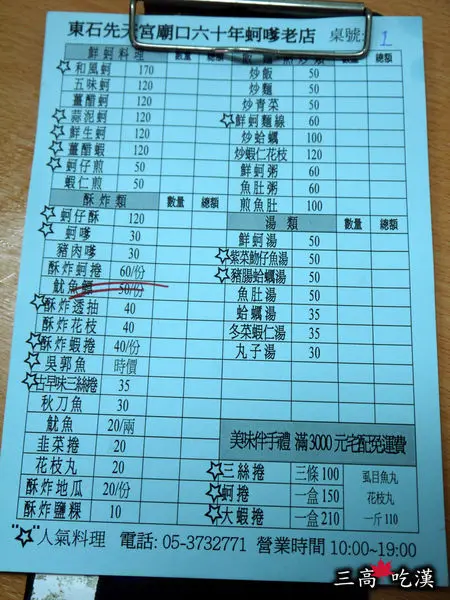 東石先天宮廟口六十年蚵嗲老店 桌號: 1
鮮蚵料理 數量 總額
☆和風蚵 170
五味蚵 120
薑醋蚵 120
☆蒜泥蚵 120
☆鮮生蚵 120
☆薑醋蝦 120
☆蚵仔煎 50
蝦仁煎 50
酥炸類 數量 總額
☆蚵仔酥 120
☆蚵嗲 30
豬肉嗲 30
酥炸蚵捲 60/份
魷魚鰓 50/份
☆酥炸透抽 40
酥炸花枝 40
☆酥炸蝦捲 40/份
☆吳郭魚 時價
☆古早味三絲捲 35
秋刀魚 30
魷魚 20/兩
韭菜捲 20
花枝丸 20
酥炸地瓜 20/份
酥炸鹽粿 10
數量 總額
炒飯 50
炒麵 50
炒青菜 50
☆鮮蚵麵線 60
炒蛤蠣 100
炒蝦仁花枝 120
鮮蚵粥 60
魚肚粥 60
煎魚肚 100
湯類 數量 總額
鮮蚵湯 50
☆紫菜魩仔魚湯 50
☆豬腸蛤蠣湯 50
魚肚湯 50
蛤蠣湯 35
冬菜蝦仁湯 35
丸子湯 30
美味伴手禮 滿3000元宅配免運費
☆三絲捲 三條100 虱目魚丸
☆蚵捲 一盒150 花枝丸
☆大蝦捲 一盒210 一斤110
"☆"人氣料理 電話: 05-3732771 營業時間 10:00~19:00
三高吃漢